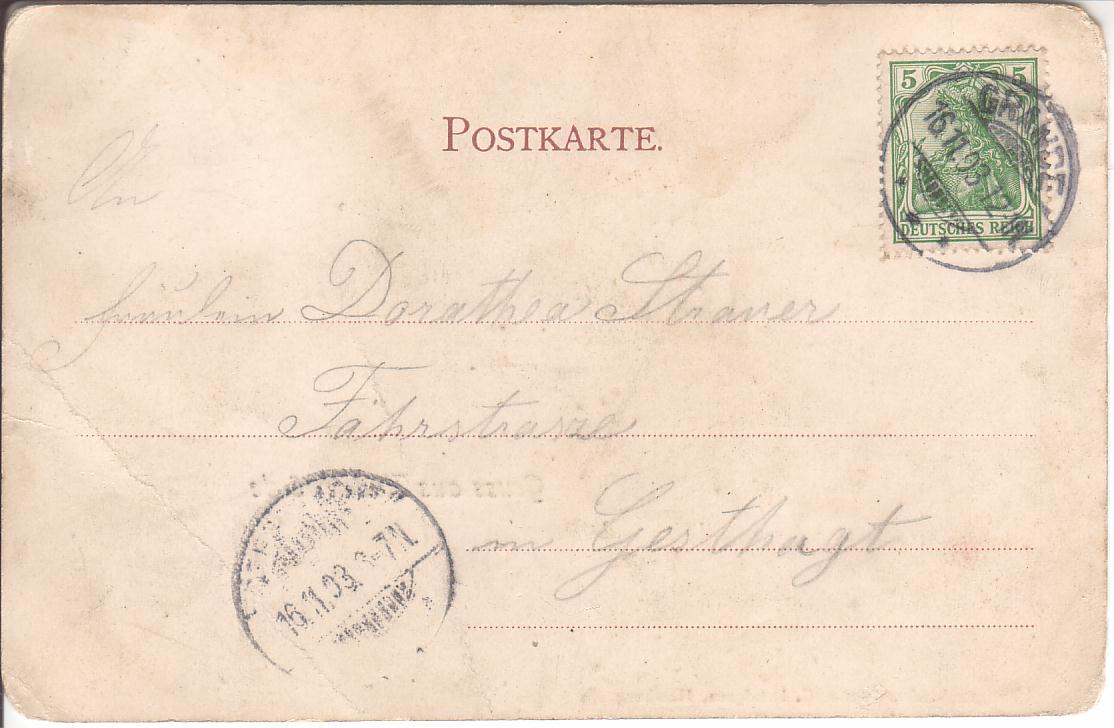 POSTKARTE.
5 5
DEUTSCHES REICH
GRANDE
16.11.03
An
Fräulein Dorathea Straver
Fährstrasze
in Gesthagt
16.11.03. 6-7N.